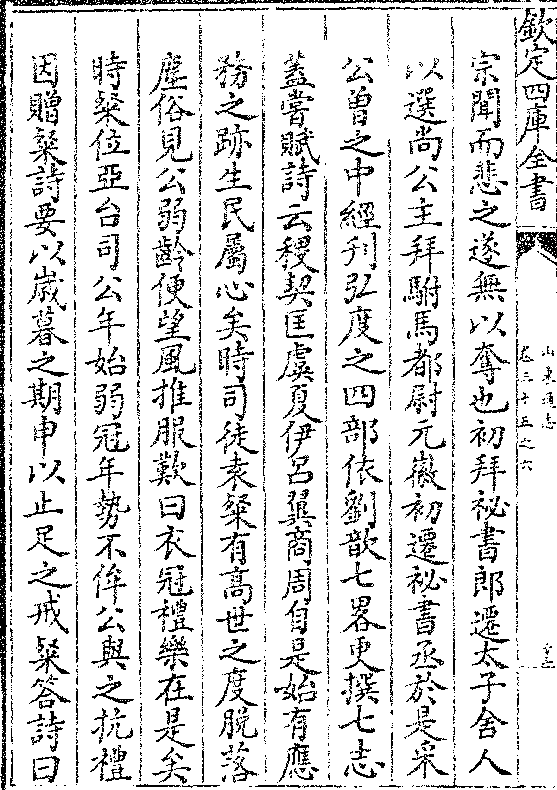 欽定四庫全書
山東通志
卷三十五之六
宗聞而悲之遂無以奪也初拜祕書郎遷太子舍人
以選尚公主拜駙馬都尉元徽初遷祕書丞於是采
公曾之中經刋弘度之四部依劉歆七畧更撰七志
蓋嘗賦詩云稷契匡虞夏伊呂翼商周自是始有應
務之跡生民屬心矣時司徒袁粲有高世之度脱落
塵俗見公弱齡便望風推服歎曰衣冠禮樂在是矣
時粲位亞台司公年始弱冠年勢不侔公與之抗禮
因贈粲詩要以嵗暮之期申以止足之戒粲答詩曰